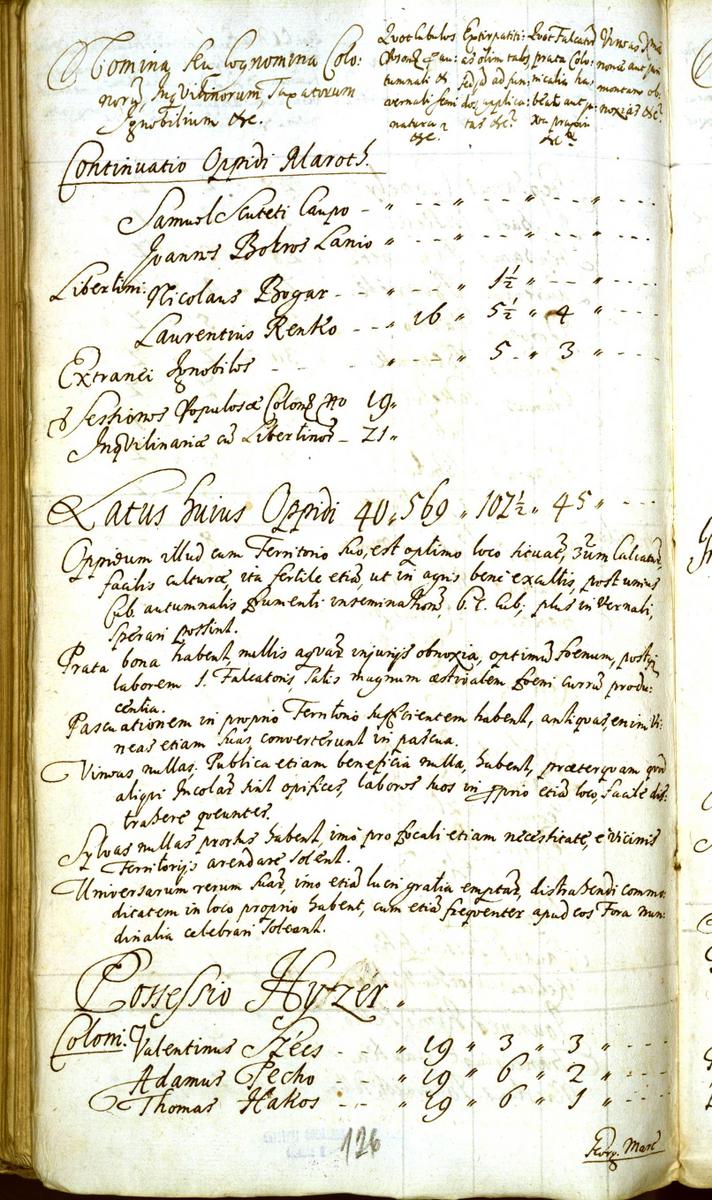 Nomina, seu Cognomina Colo:
norũ, InqVilinorum, Taxativum
Ignobilium etc.
Quot Cubulos
tumnali et
vernali semi
natura
etc.
Extirpatiti:
as olim tales
sed ad jun
dos applica:
tas etc.
Quot Falcatorũ
prata Colo:
nicalia ha
beat aut
etc.
Vineas
montanũ ob:
noxias etc.
Continuatio Oppidi Maroth.
Samuel Scuteti Caupo - „ - - - „ - - - „ - - - „ - - -
Joannes Bokros Lanio „ - - - „ - - - „ - - - „ - - -
Libertini: Nicolaus Bogar - - „ - - - „ 1½ „ - - - „ - - -
Laurentius Renko - - „ 16 „ 5½ „ 4 „ - - -
Extranei Ignobiles - - - „ - - - „ 5 - „ 3 „ - - -
Sessiones Populosæ Colon No 19„
InqVilinariæ cũ Libertinis - 21„
Latus huius Oppidi 40„ 569 „ 102½ „ 45 „ - - -
Oppidum illud cum Territorio suo, est optimo loco situatũ, 3um Calcaturæ,
facilis culturæ, ita fertile etiã, ut in agris bene excultis, post unius
Cub. autumnalis frumenti inseminationẽ, 6. 7. Cub; plus in vernali,
sperari possint.
Prata bona habent, nullis aquarũ injurijs obnoxia, optimũ foenum, post
laborem 1. Falcatoris, satis magnum æstivalem foeni currũ produ:
centia.
Pascuationem in proprio Territorio sufficientem habent, antiquas enim Vi:
neas etiam suas converterunt in pascua.
Vineas nullas. Publica etiam beneficia nulla, habent, præterquam quod
aliqui Incolarũ sint opifices, labores suos in pprio etiã loco, facile dis:
trahere queuntes.
Sylvas nullas prorsus habent, imo pro focali etiam necessitate, e vicinis
Territorijs arendare solent.
Universarum rerum suarũ, imo etiã lucri gratia emptarũ, distrahendi commo:
ditatem in loco proprio habent, cum etiã frequenter apud eos Fora nun:
dinalia celebrari soleant.
Possessio Hyzér„
Coloni: Valentinus Szécs - - „ 19 „ 3 „ 3 „ - - -
Adamus Pecho - - - „ 19 „ 6 „ 2 „ - - -
Thomas Hakos - - „ 19 „ 6 „ 1 „ - - -
126
Georg. Mart